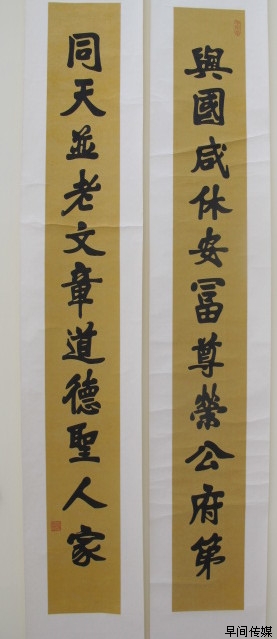 與國咸休安冨尊榮公府第
同天並老文章道德聖人家
早间传媒